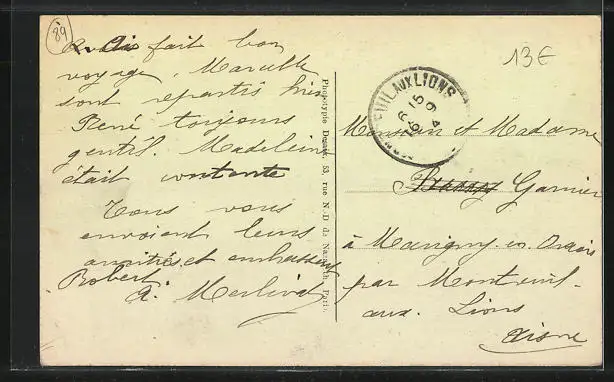 89
fait bon
voyage. Marcelle
sont repartis hier
René toujours
gentil. Madeleine
était contente
Tous vous
envoient leurs
amitiés et embrassent
Robert
A.
Phototypie Desaix, 53, rue N.-D. de Nazareth, Paris.
13€
MONTREUIL AUX LIONS
16 R 15
9
4
Monsieur et Madame
Garnier
à Marigny-en-Orxois
par Montreuil-
aux-Lions
Aisne